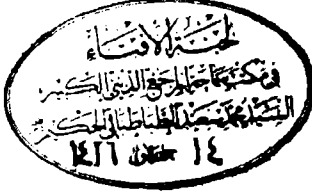 لجنة الافتاء
في مكتب سماحة المرجع الديني الكبير
السيد محمد سعيد الطباطبائي الحكيم
١٤ ١٤١٦